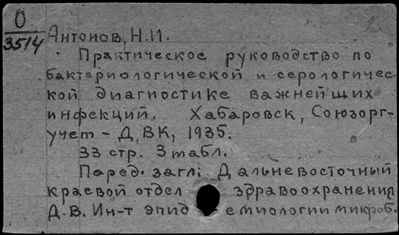 О
3514
Антонов, Н.И.
Практическое руководство по
бактериологической и серологичес-
кой диагностике важнейших
инфекций. Хабаровск, Союзорг-
учет - Д.ВК, 1935.
33 стр. 3 табл.
Перед загл.: Дальневосточный
краевой отдел здравоохранения
Д.В. Ин-т эпидемиологии микроб.